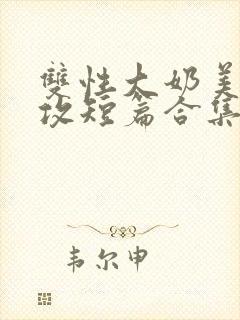 雙性大奶美
攻短篇合集
韦尔申